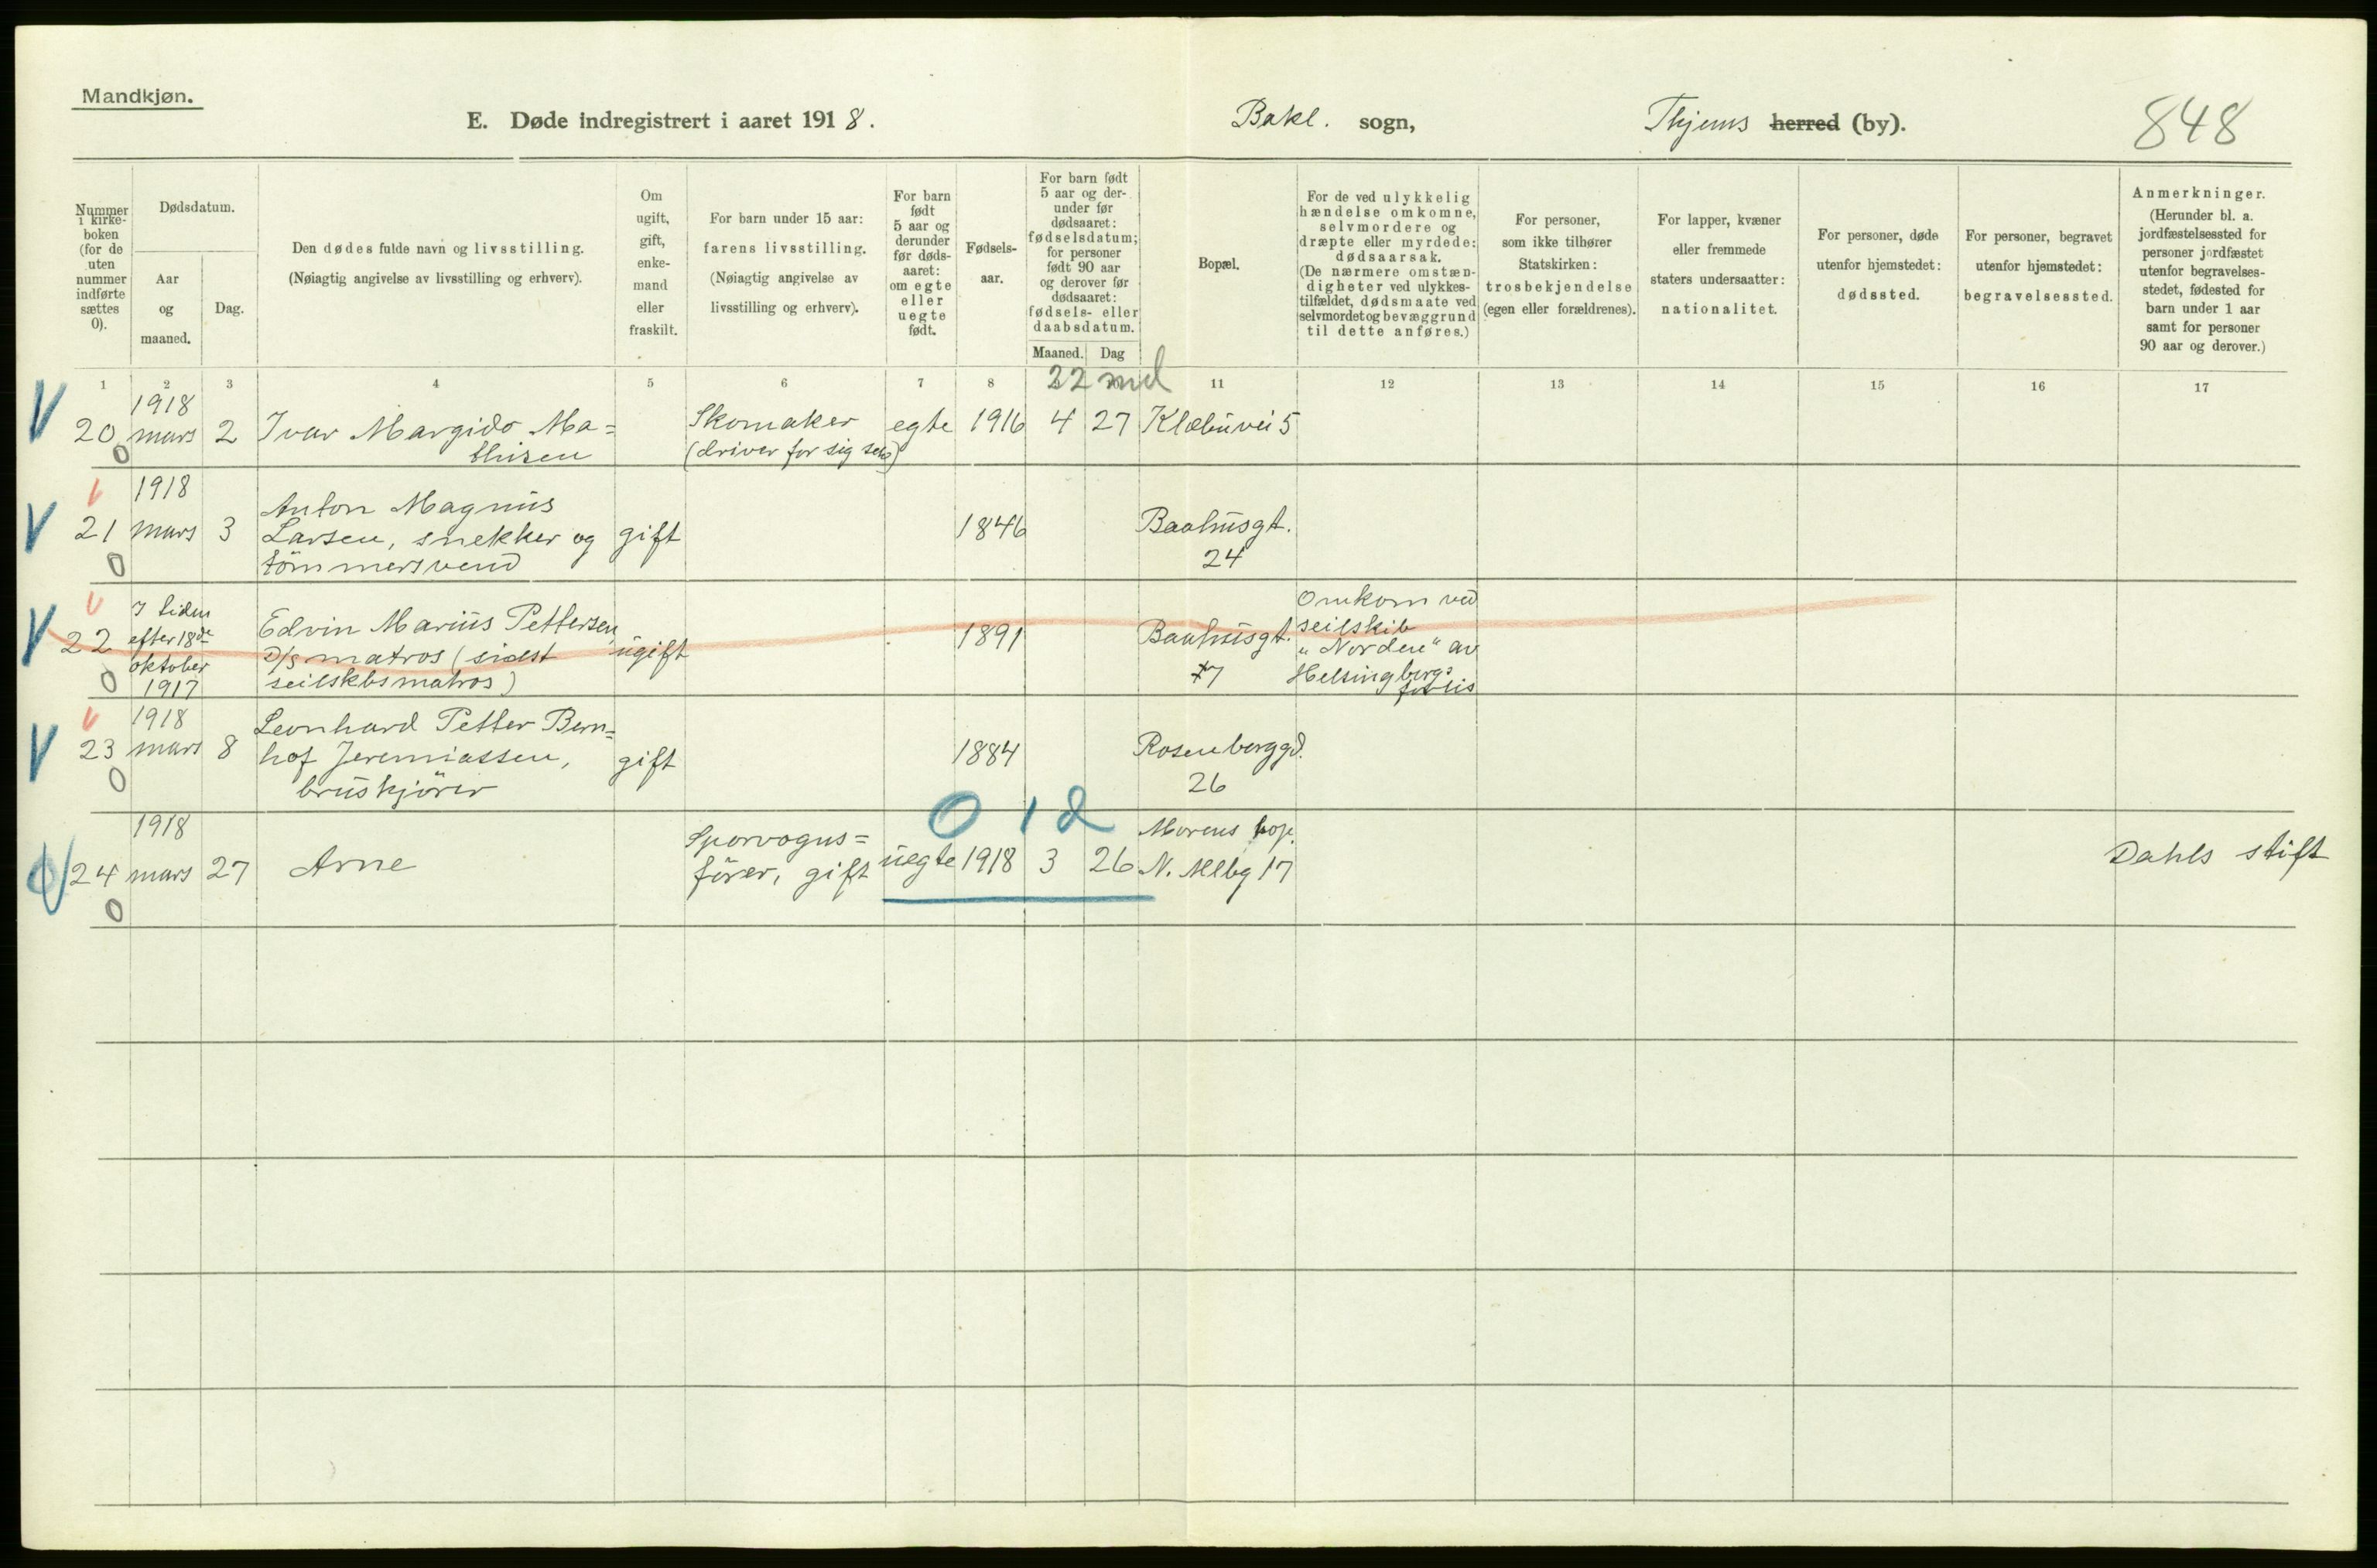 Mandkjøn.
E. Døde indregistrert i aaret 1918.
Bakl. sogn,
Thjems herred (by).
848
Nummer i kirke-boken (for de uten nummer indførte sættes 0).
Dødsdatum.
Aar og maaned.
Dag.
Den dødes fulde navn og livsstilling.
(Nøiagtig angivelse av livsstilling og erhverv).
Om ugift, gift, enke-mand eller fraskilt.
For barn under 15 aar:
farens livsstilling.
(Nøiagtig angivelse av livsstilling og erhverv).
For barn født 5 aar og derunder før døds-aaret: om egte eller uegte født.
Fødsels-aar.
For barn født 5 aar og der-under før dødsaaret: fødselsdatum; for personer født 90 aar og derover før dødsaaret: fødsels- eller daabsdatum.
Maaned. Dag
Bopæl.
For de ved ulykkelig hændelse omkomne, selvmordere og dræpte eller myrdede: dødsaarsak.
(De nærmere omstæn-digheter ved ulykkes-tilfældet, dødsmaate ved selvmordet og bevæggrund til dette anføres.)
For personer, som ikke tilhører Statskirken: trosbekjendelse (egen eller forældrenes).
For lapper, kvæner eller fremmede staters undersaatter: nationalitet.
For personer, døde utenfor hjemstedet: dødssted.
For personer, begravet utenfor hjemstedet: begravelsessted.
Anmerkninger.
(Herunder bl. a. jordfæstelsessted for personer jordfæstet utenfor begravelses-stedet, fødested for barn under 1 aar samt for personer 90 aar og derover.)
1 2 3 4 5 6 7 8 22 md 11 12 13 14 15 16 17
1918
20 mars 2 Ivar Margido Ma= Skomaker egte 1916 4 27 Klæbuvei 5
0 thisen (driver for sig selv)
1918
Anton Magnus
21 mars 3 Larsen, snekker og gift 1846 Baahusgt.
0 tömmersvend 24
I tiden Omkom ved
22 efter 18de Edvin Marius Pettersen, 1891 Baahusgt. seilskib
oktober D/S matros (sidst ugift 7 "Norden" av
0 1917 seilskbsmatros) Helsingbergs forlis
1918 Leonhard Petter Bern=
23 mars 8 hof Jeremiassen, gift 1884 Rosenberggd.
0 bruskjörer 26
0 1 2
1918 Sporvogns= Morens bop.
24 mars 27 Arne förer, gift uegte 1918 3 26 N. Mlbg 17 Dahls stift
0